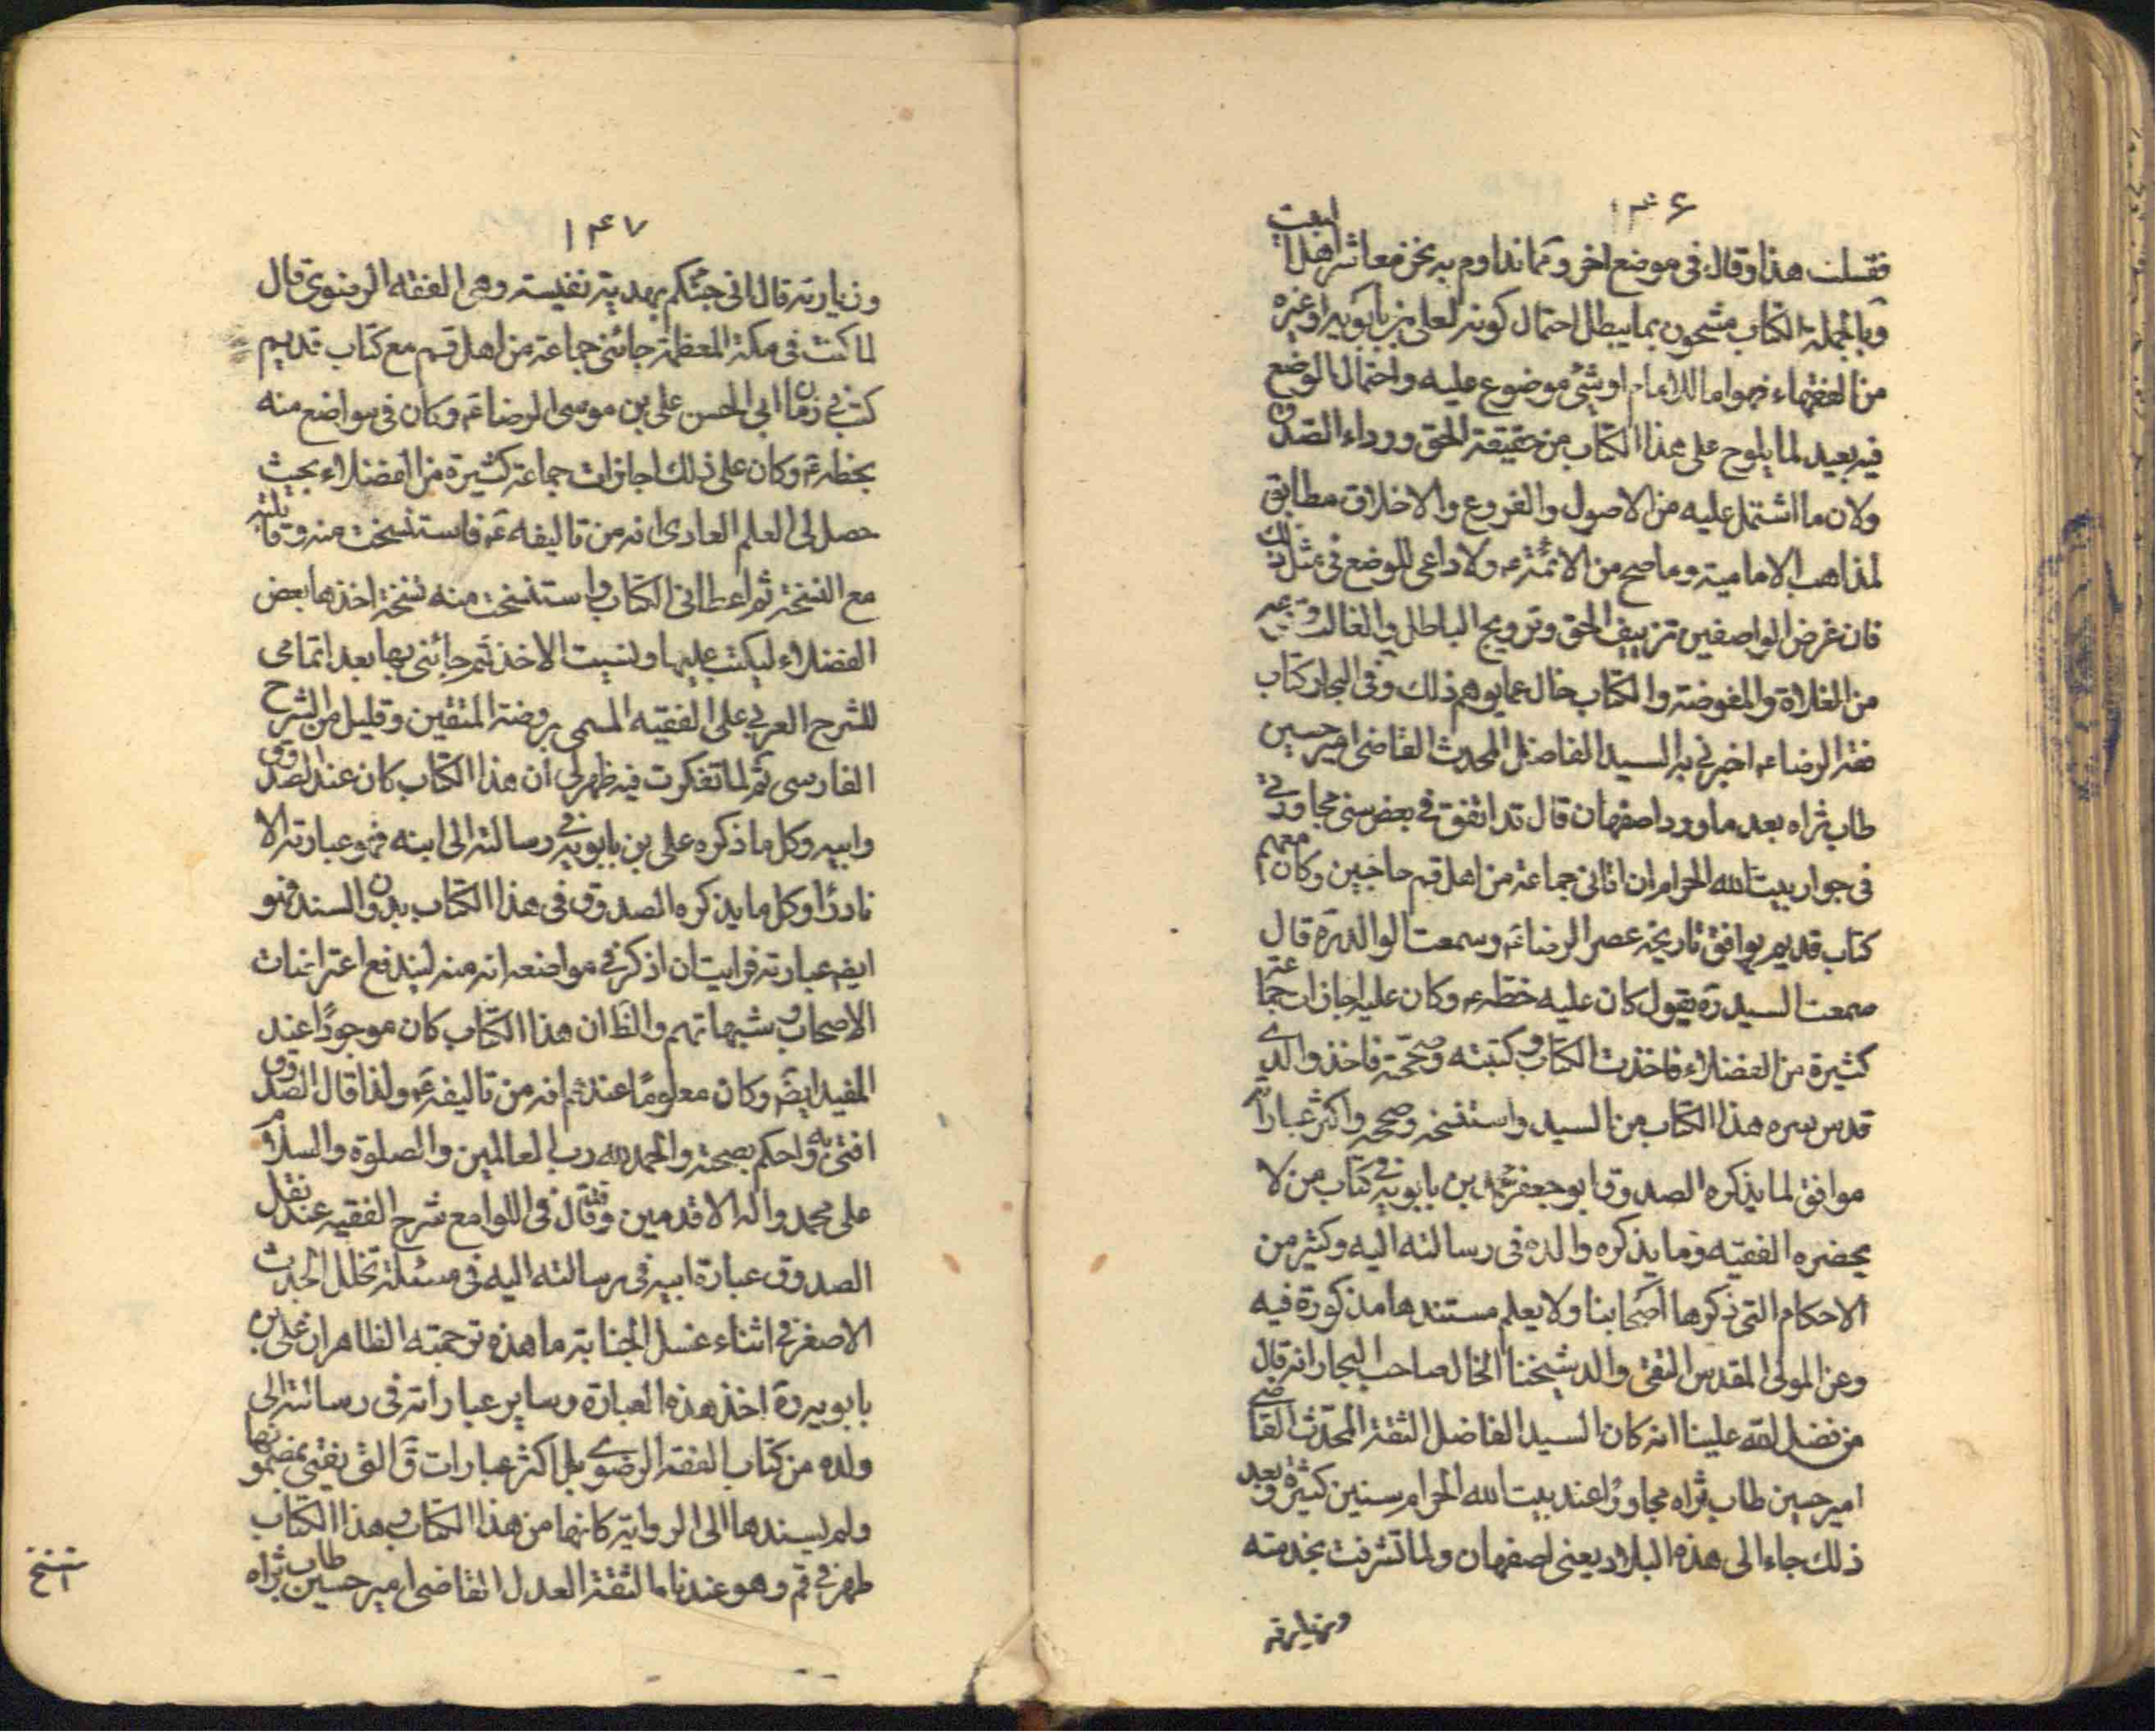 ١٤٦
فقلت هذا وقال في موضع اخر ومما نداوم به نحن معاشر اهل البيت
وبالجملة الكتاب مشحون بما يبطل احتمال كونه لعلي بن بابويه او غيره
من الفقهاء فهو اما للامام او شئ موضوع عليه واحتمال الوضع
فيه بعيد لما يلوح على هذا الكتاب من حقيقة الحق ورداء الصدق
ولان ما اشتمل عليه من الاصول والفروع والاخلاق مطابق
لمذاهب الامامية وما صح من الائمة ع ولا داعى للوضع في مثل ذلك
فان غرض الواصفين تزييف الحق وترويج الباطل والغالب وقوعه
من الغلاة والمفوضة والكتاب خال عما يوهم ذلك وفي البحار كتاب
فقه الرضا ع اخبرني به السيد الفاضل المحدث القاضي امير حسين
طاب ثراه بعد ما ورد اصفهان قال قد اتفق في بعض سني مجاورتي
في جوار بيت الله الحرام ان اتاني جماعة من اهل قم حاجين وكان معهم
كتاب قديم يوافق تاريخه عصر الرضا ع وسمعت الوالد ره قال
سمعت السيد ره يقول كان عليه خطه ع وكان عليه اجازات جماعة
كثيرة من الفضلاء فاخذت الكتاب وكتبته وصححته فاخذ والدي
قدس سره هذا الكتاب من السيد واستنسخه وصححه واكثر عباراته
موافق لما يذكره الصدوق ابو جعفر محمد بن بابويه في كتاب من لا
يحضره الفقيه وما يذكره والده في رسالته اليه وكثير من
الاحكام التى ذكرها اصحابنا ولا يعلم مستندها مذكورة فيه
وعن المولى المقدس التقي والد شيخنا الخال صاحب البحار انه قال
من فضل الله علينا انه كان السيد الفاضل الثقة المحدث القاضي
امير حسين طاب ثراه مجاورا عند بيت الله الحرام سنين كثيرة وبعد
ذلك جاء الى هذه البلاد يعني اصفهان ولما تشرفت بخدمته
وزيارته
١٤٧
وزيارته قال اني جئتكم بهدية نفيسة وهى الفقه الرضوي قال
لما كنت في مكة المعظمة جائني جماعة من اهل قم مع كتاب قديم
كتب في زمان ابي الحسن علي بن موسى الرضا ع وكان في مواضع منه
بخطه ع وكان على ذلك اجازات جماعة كثيرة من الفضلاء بحيث
حصل لى العلم العادى انه من تاليفه ع فاستنسخت منه وقابلته
مع النسخة ثم اعطاني الكتاب واستنسخت منه نسخة اخذها بعض
الفضلاء ليكتب عليها ونسيت الاخذ ثم جائني بها بعد اتمامي
للشرح العربي على الفقيه المسمى بروضة المتقين وقليل من الشرح
الفارسى ثم لما تفكرت فيه ظهر لى ان هذا الكتاب كان عند الصدوق
وابيه وكل ما ذكره علي بن بابويه في رسالته الى ابنه فهو عبارته الا
نادرا وكل ما يذكره الصدوق في هذا الكتاب بدون السند فهو
ايض عبارته فرايت ان اذكر في مواضعه انه منه ليندفع اعتراضات
الاصحاب وشبهاتهم والظ ان هذا الكتاب كان موجودا عند
المفيد ايض وكان معلوما عندهم انه من تاليفه ع ولذا قال الصدوق
افتي به واحكم بصحته والحمد لله رب العالمين والصلوة والسلام
على محمد واله الاقدمين وقال في اللوامع شرح الفقيه عند نقل
الصدوق عبارة ابيه في رسالته اليه في مسئلة تخلل الحدث
الاصغر في اثناء غسل الجنابة ما هذه ترجمته الظاهر ان علي بن
بابويه ره اخذ هذه العبارة وساير عباراته في رسالته الى
ولده من كتاب الفقه الرضوي بل اكثر عبارات ق التى يفتي بمضمونها
ولم يسندها الى الرواية كانها من هذا الكتاب وهذا الكتاب
ظهر في قم وهو عندنا والثقة العدل القاضي امير حسين طاب ثراه